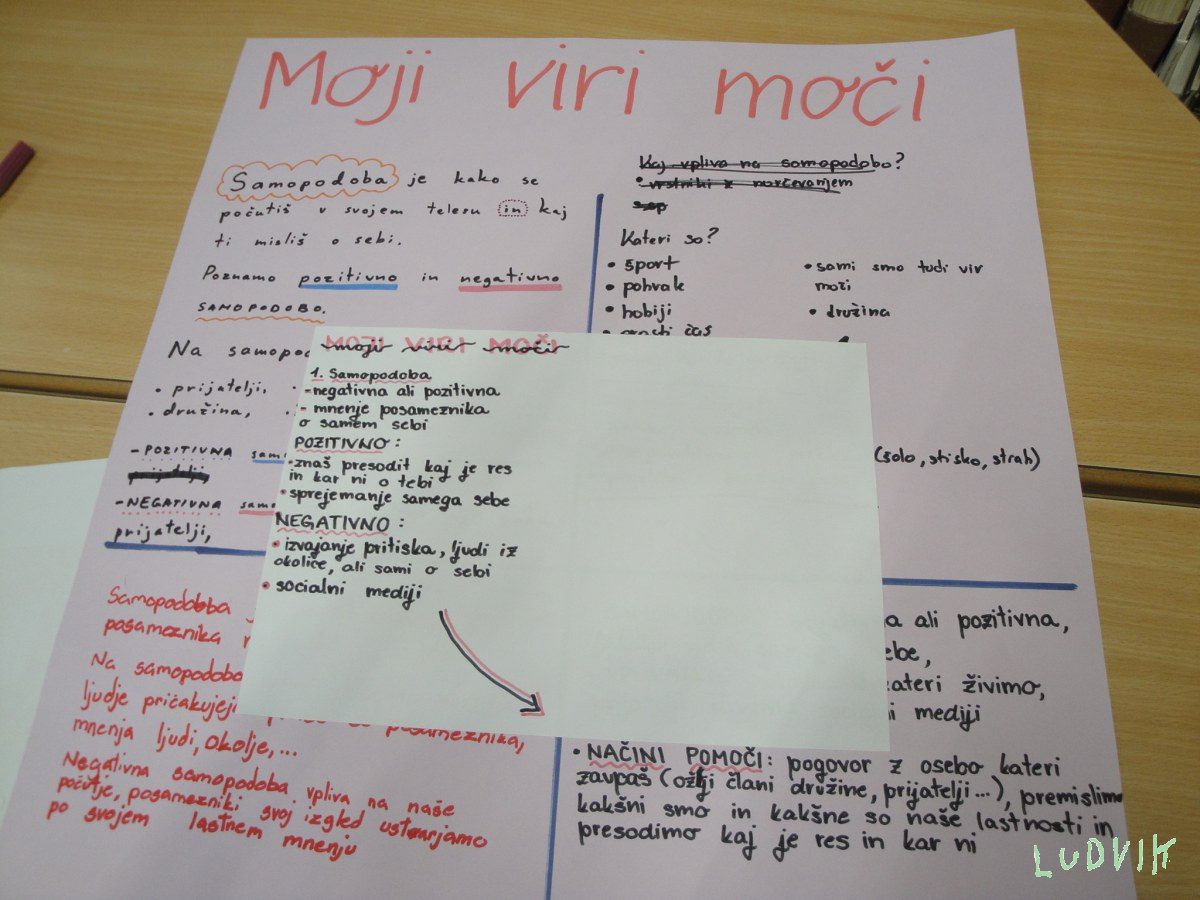 Moji viri moči
Samopodoba je kako se
počutiš v svojem telesu in kaj
ti misliš o sebi.
Poznamo pozitivno in negativno
SAMOPODOBO.
Na samopod
• prijatelji,
• družina,
-POZITIVNA samo
prijatelji
-NEGATIVNA samo
prijatelji,
Kaj vpliva na samopodobo?
• vrstniki z norčevanjem
Kateri so?
• šport
• pohvale
• hobiji
• prosti čas
• sami smo tudi vir
moči
• družina
(šolo, stisko, strah)
moji viri moči
1. Samopodoba
-negativna ali pozitivna
- mnenje posameznika
o samem sebi
POZITIVNO:
•znaš presodit kaj je res
in kar ni o tebi
•sprejemanje samega sebe
NEGATIVNO:
• izvajanje pritiska, ljudi iz
okolice, ali sami o sebi
• socialni mediji
Samopodoba
posameznika
Na samopodobo
ljudje pričakujejo
posameznika,
mnenja ljudi, okolje,...
Negativna samopodoba vpliva na naše
počutje, posamezniki svoj izgled ustvarjamo
po svojem lastnem mnenju
a ali pozitivna,
ebe,
kateri živimo,
ni mediji
• NAČINI POMOČI: pogovor z osebo kateri
zaupaš (ožji člani družine, prijatelji...), premislimo
kakšni smo in kakšne so naše lastnosti in
presodimo kaj je res in kar ni
LUDVIK